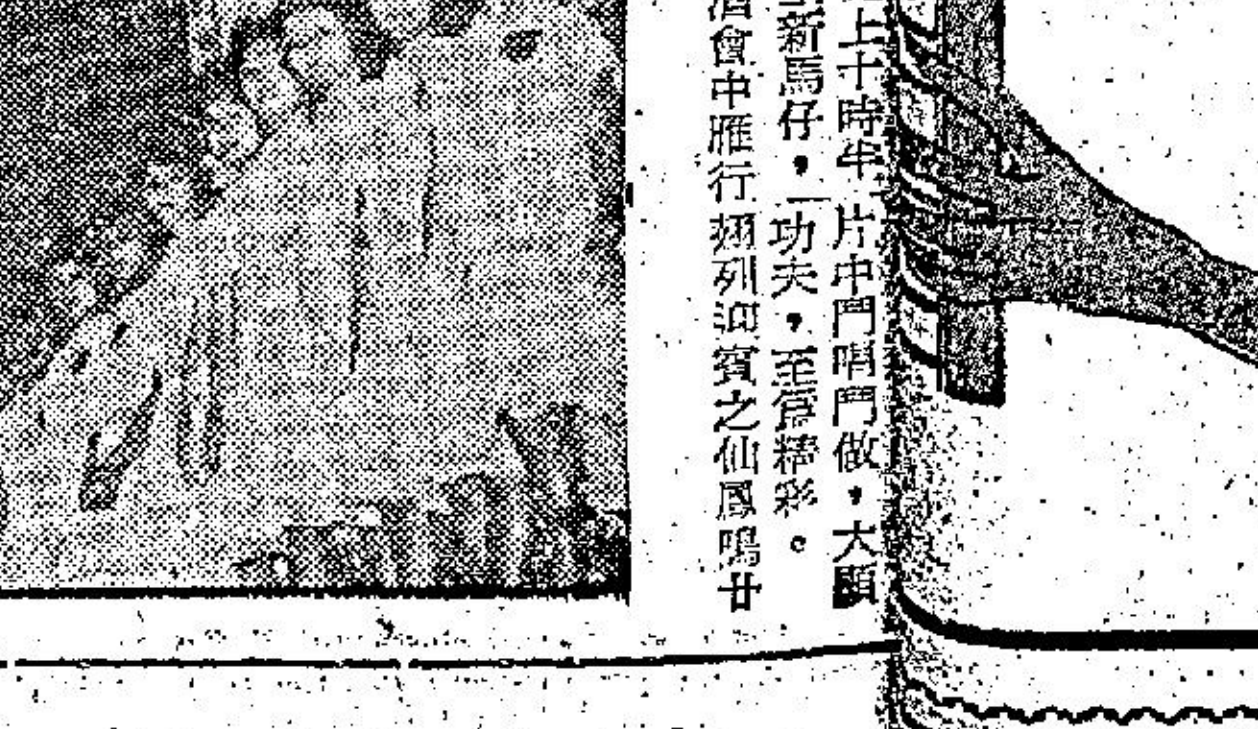 上十時半 片中鬥唱鬥做，大顯
新馬仔，一功夫，至管精彩。
酒會中雁行翅列迎賓之仙鳳鳴廿